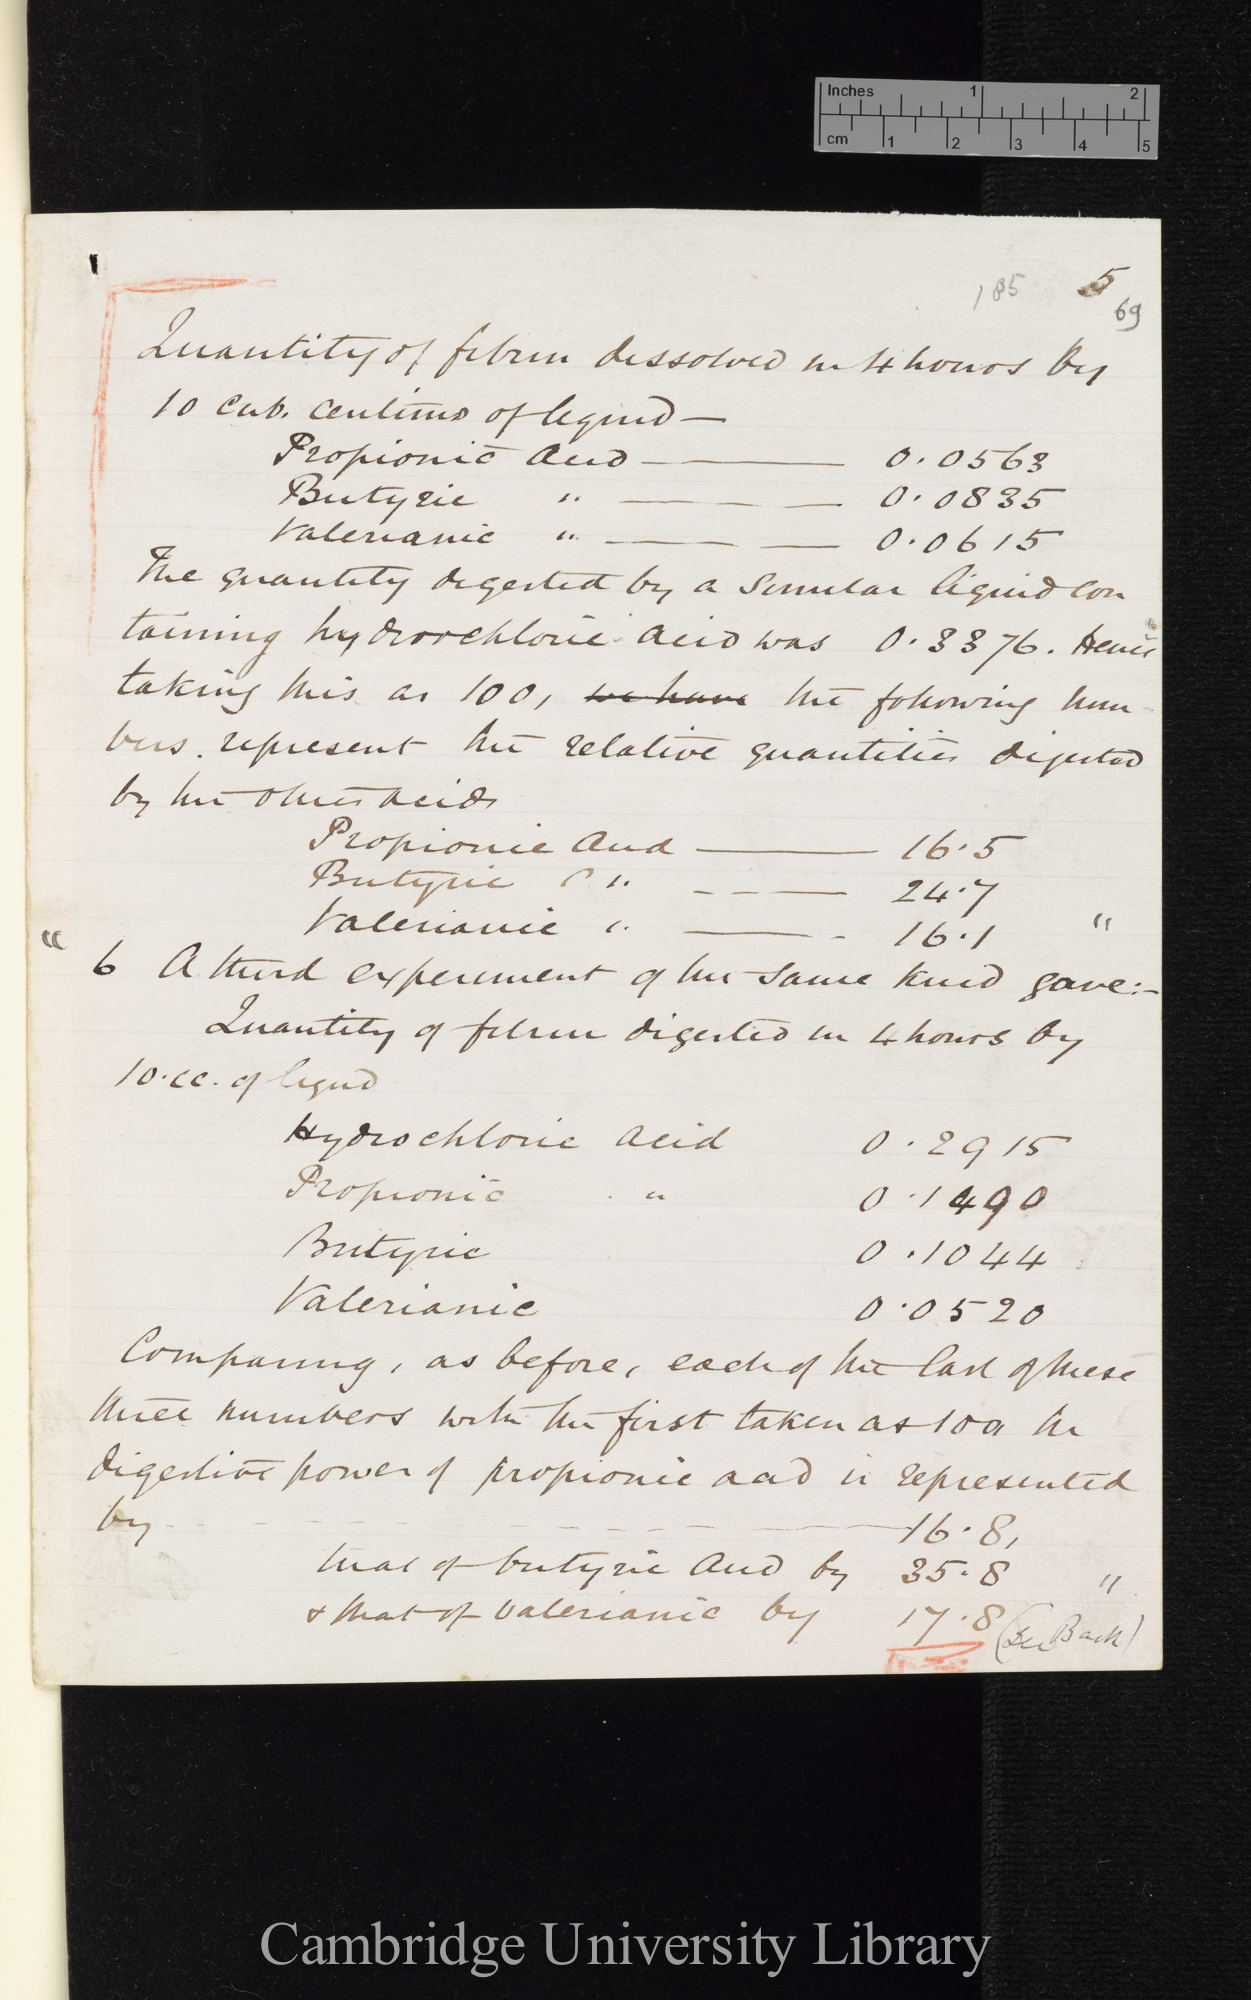 Inches 1 2
cm 1 2 3 4 5
185 5
69
Quantity of fibrin dissolved in 4 hours by
10 cub. centims of liquid —
Propionic Acid — 0.0563
Butyric " — 0.0835
Valerianic " — 0.0615
The quantity digested by a similar liquid con
taining hydrochloric acid was 0.3376. Hence
taking this as 100, we have the following num-
bers represent the relative quantities digested
by the other acids
Propionic Acid — 16.5
Butyric " — 24.7
Valerianic " — 16.1 "
" 6 A third experiment of the same kind gave:-
Quantity of fibrin digested in 4 hours by
10.cc. of liquid
Hydrochloric acid 0.2915
Propionic " 0.1490
Butyric 0.1044
Valerianic 0.0520
Comparing, as before, each of the last of these
three numbers with the first taken as 100 the
digestive power of propionic acid is represented
by - - - - - - 16.8,
that of butyric Acid by 35.8 "
& that of valerianic by 17.8 (See Back)
Cambridge University Library